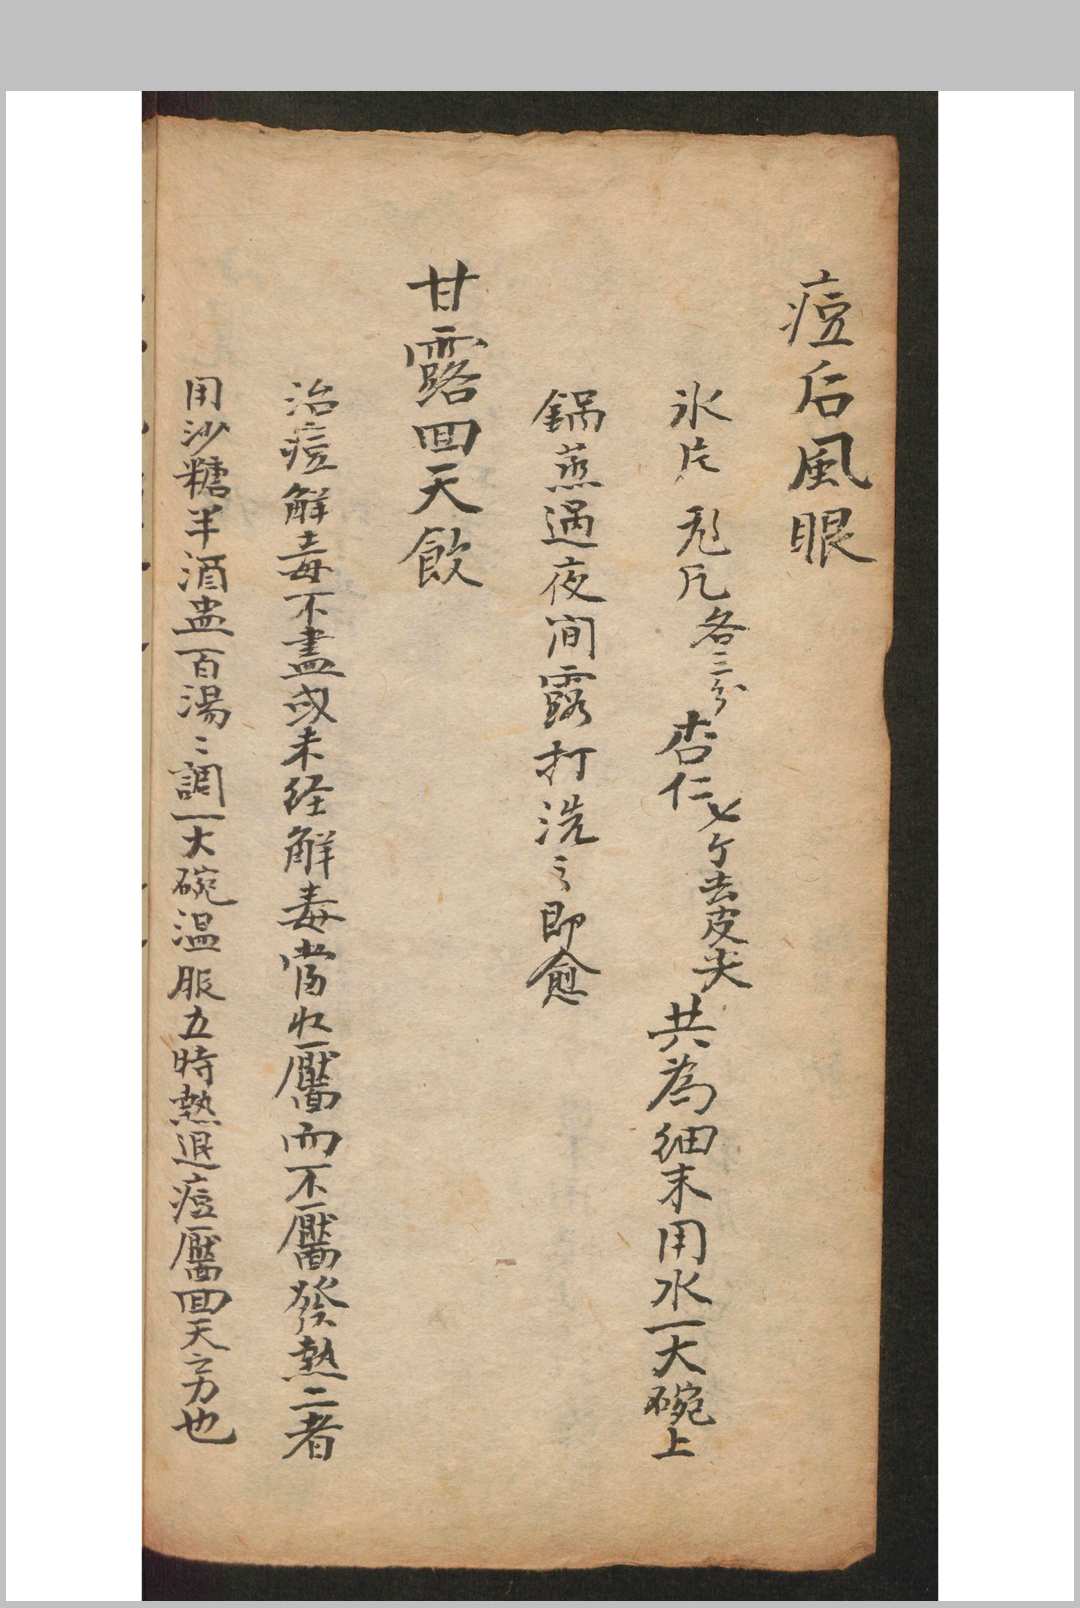 痘后風眼
氷片 𢒎凡各二分杏仁七个去皮尖共為細末用水一大碗上
鍋蒸過夜间露打洗之即愈
甘露回天飲
治痘觧毒不盡或未经觧毒當收靨而不靨發熱二者
用沙糖半酒盅百湯〻調一大碗温服五時熱退痘靨回天之功也